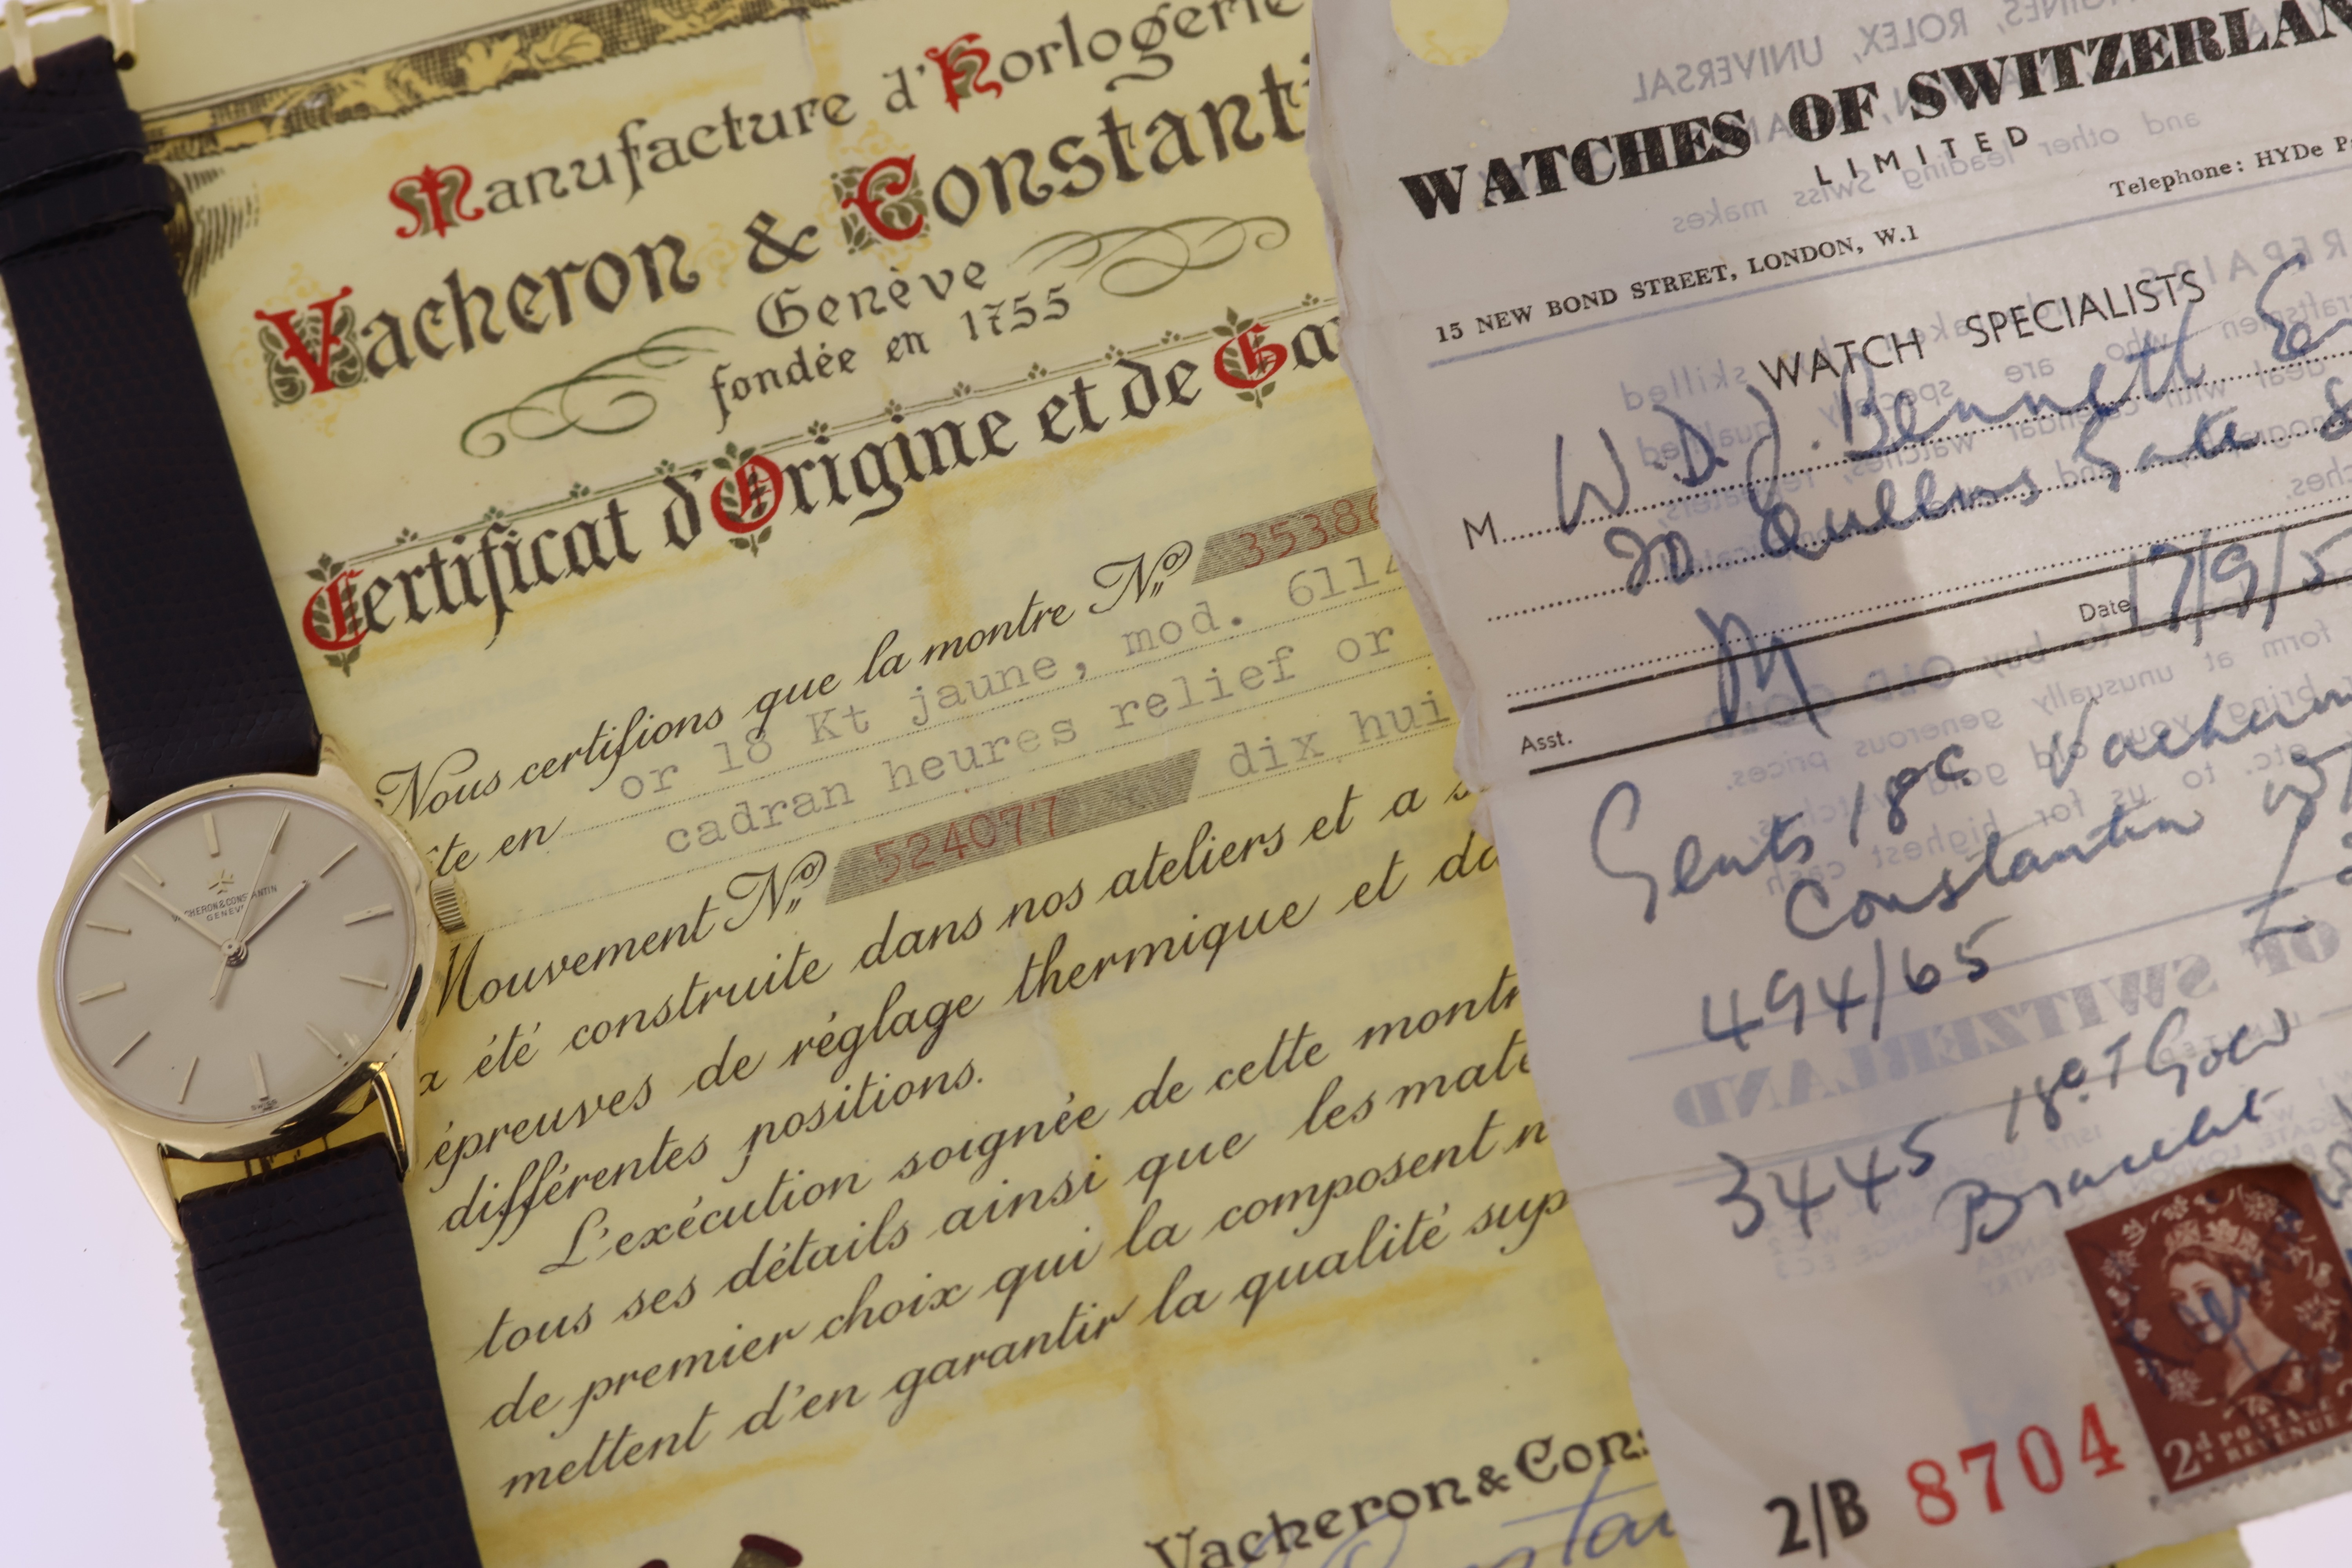 Manufacture d'Horlogerie
Vacheron & Constanti
Genève
fondée en 1755
Certificat d'Origine et de Ga
Nous certifions que la montre No. 3538
te en or 18 Kt jaune, mod. 611
cadran heures relief or
Mouvement No. 524077 dix hui
a été construite dans nos ateliers et a s
épreuves de réglage thermique et da
différentes positions.
L'exécution soignée de cette montr
tous ses détails ainsi que les maté
de premier choix qui la composent n
mettent d'en garantir la qualité sup
Vacheron & Cons
VACHERON & CONSTANTIN
GENEVE
SWISS
WATCHES OF SWITZERLAN
LIMITED
Telephone: HYDe P
15 NEW BOND STREET, LONDON, W.1
WATCH SPECIALISTS
M W.D.J. Bennett
20 Queens Gate
Date 17/9/5
Asst.
Gents 18c Vacheron
Constantin
494/65
3445 18ct Gold
Bracelet
2d POSTAGE
REVENUE
2/B 8704